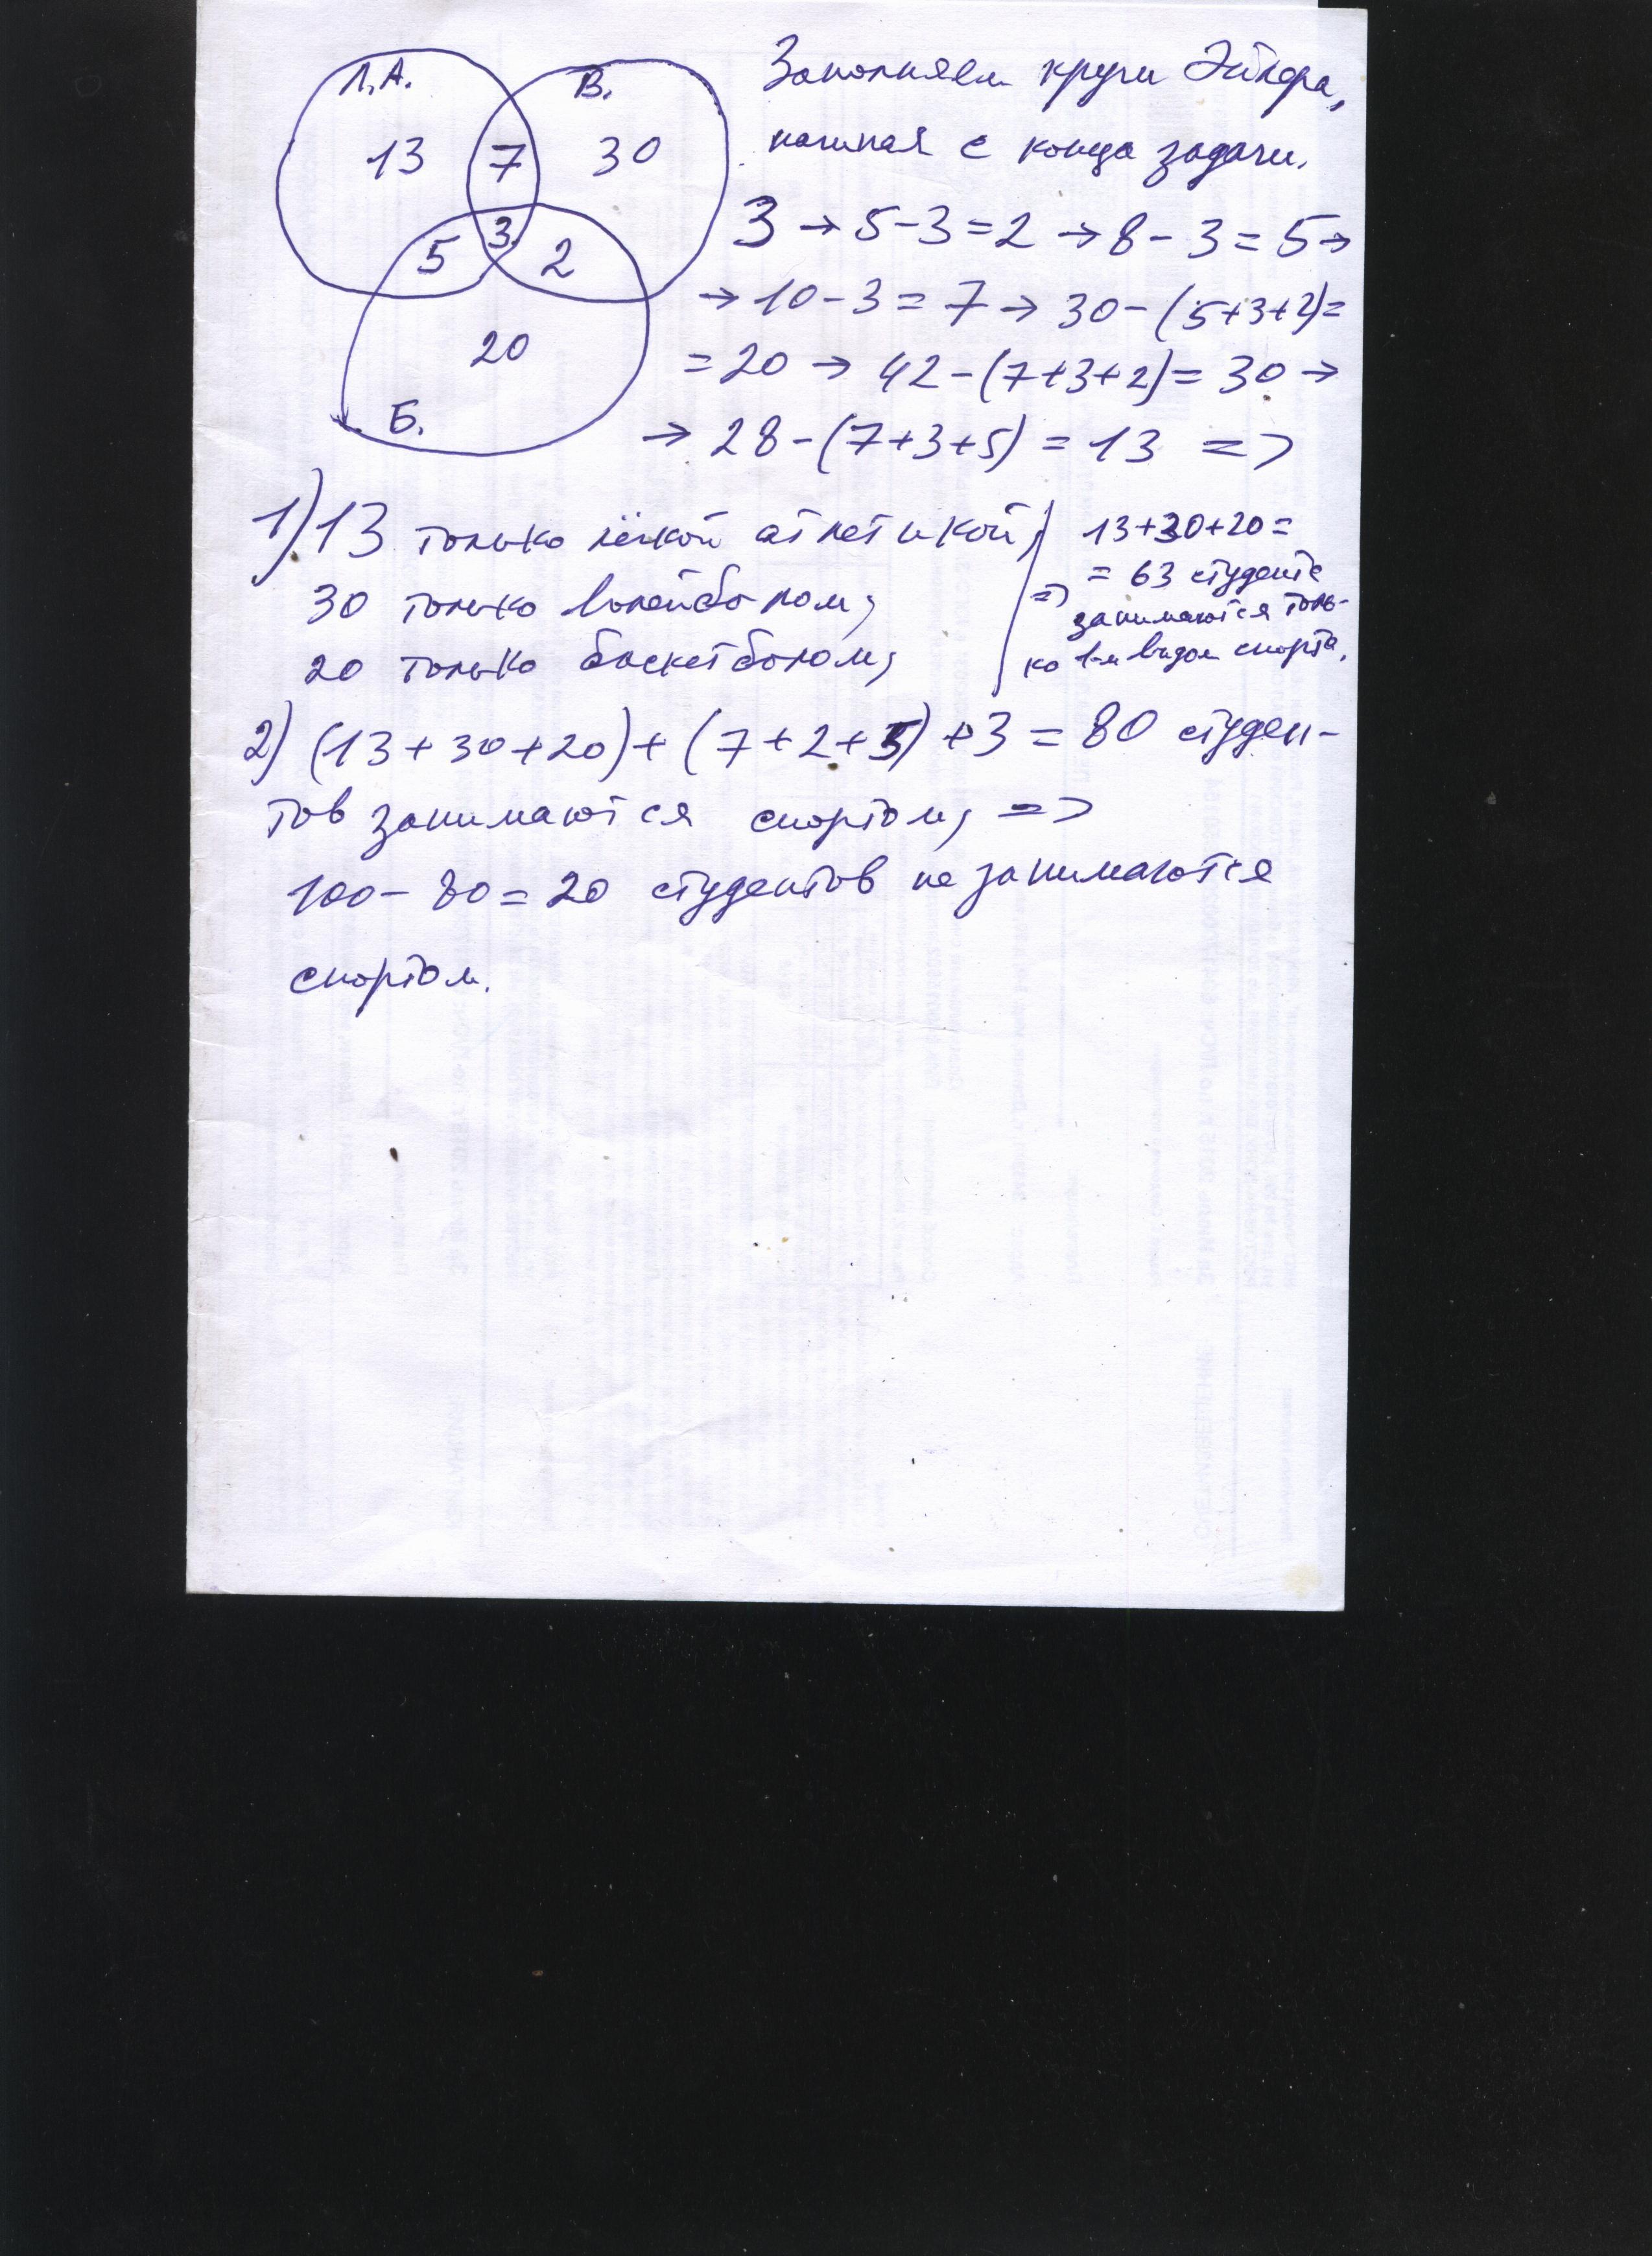 Л.А.
В.
13
7
30
3
5
2
20
Б.
Заполняем круги Эйлера,
начиная с конца задачи.
3 → 5-3=2 → 8-3=5 →
→ 10-3=7 → 30-(5+3+2)=
=20 → 42-(7+3+2)=30 →
→ 28-(7+3+5)=13 =>
1) 13 только лёгкой атлетикой;
30 только волейболом;
20 только баскетболом;
13+30+20=
=> = 63 студента
занимаются толь-
ко 1-м видом спорта.
2) (13+30+20)+(7+2+5)+3=80 студен-
тов занимаются спортом; =>
100-80=20 студентов не занимаются
спортом.